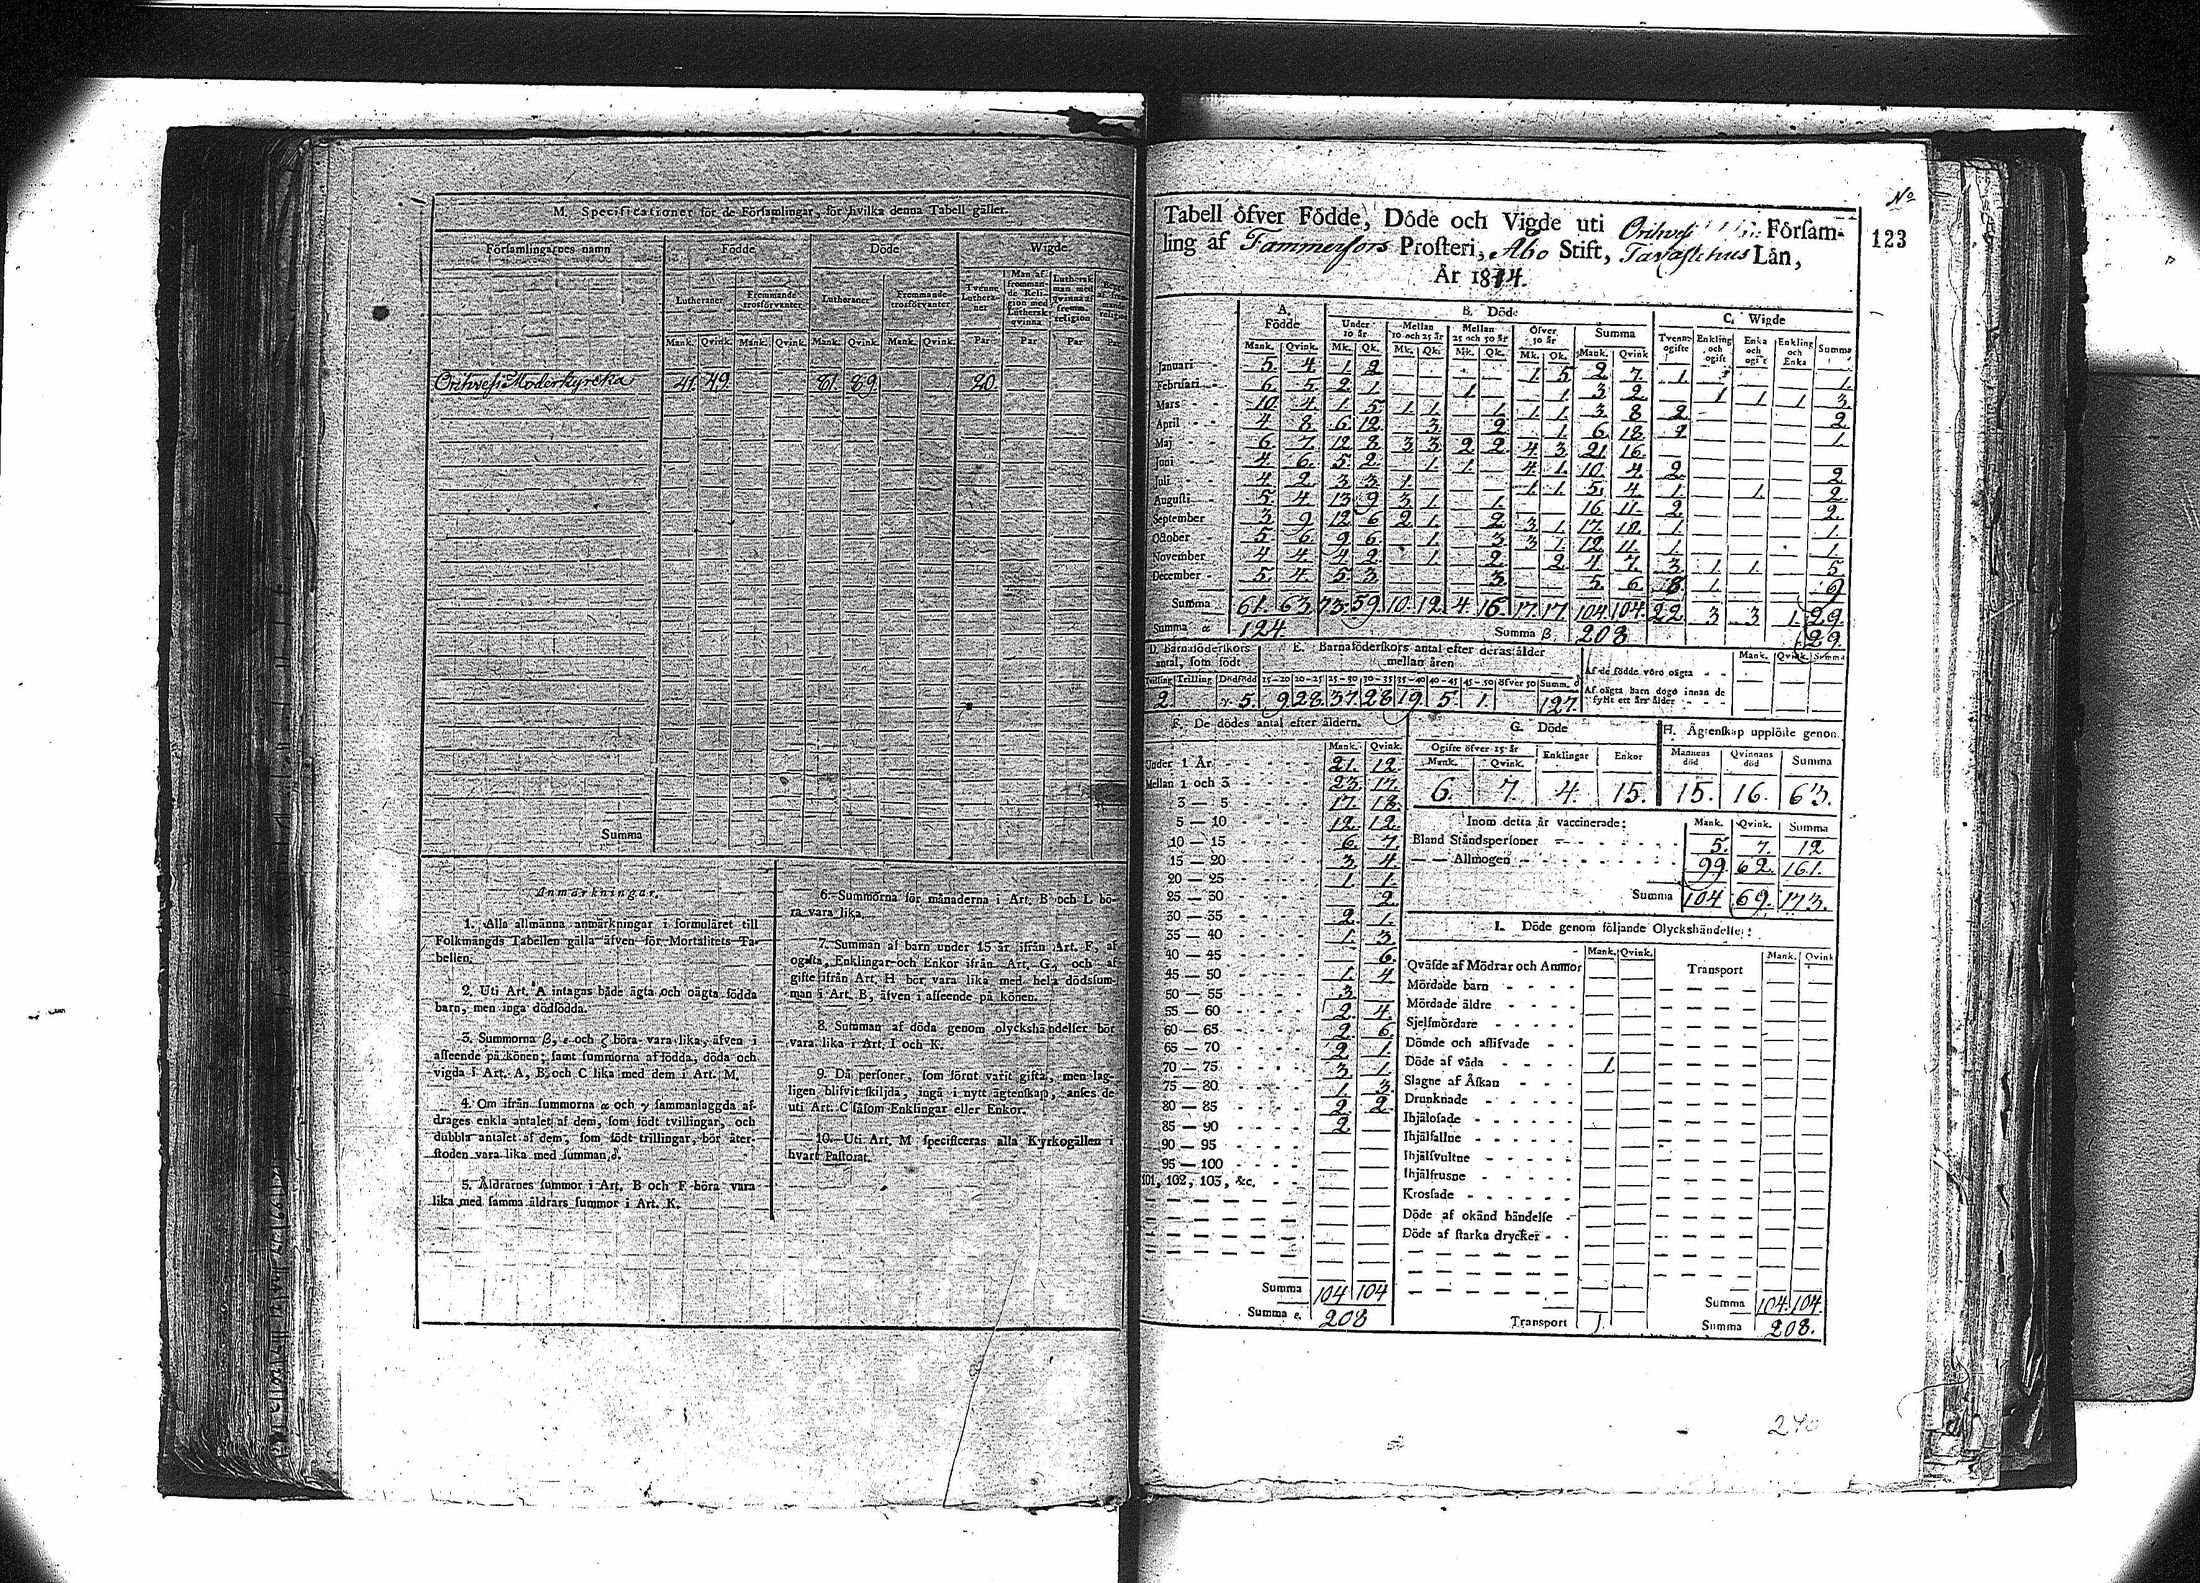 M. Specificationer för de Församlingar, för hvilka denna Tabell gäller.
Församlingarnes namn Födde Döde Wigde
Lutheraner Fremmande trosförvanter Lutheraner Fremmande trosförvanter Tvenne Lutheraner Man af fremmande Religion med Luthersk qvinna Luthersk man med qvinna af fremm. religion
Mank. Qvink. Mank. Qvink. Mank. Qvink. Mank. Qvink. Par Par Par Par
Orihvesi Moderkyrcka 41. 49. 81. 89. 20.
Summa
Anmärkningar.
1. Alla allmänna anmärkningar i formuläret till
Folkmängds Tabellen gälla äfven för Mortalitets Ta-
bellen.
2. Uti Art. A intagas både ägta och oägta födda
barn, men inga dödfödda.
3. Summorna β, ε och ζ böra vara lika, äfven i
afseende på könen; samt summorna af födda, döda och
vigda i Art. A, B och C lika med dem i Art. M.
4. Om ifrån summorna α och γ sammanlaggda af-
drages enkla antalet af dem, som födt tvillingar, och
dubbla antalet af dem, som födt trillingar, bör åter-
stoden vara lika med summan δ.
5. Åldrarnes summor i Art. B och F böra vara
lika med samma åldrars summor i Art. K.
6. Summorna för månaderna i Art. B och L bö-
ra vara lika.
7. Summan af barn under 15 år ifrån Art. F, af
ogifta, Enklingar och Enkor ifrån Art. G, och af
gifte ifrån Art. H bör vara lika med hela dödssum-
man i Art. B, äfven i afseende på könen.
8. Summan af döda genom olyckshändelser bör
vara lika i Art. I och K.
9. Då personer, som förut varit gifta, men lag-
ligen blifvit skiljda, ingå i nytt ägtenskap, anses de
uti Art. C såsom Enklingar eller Enkor.
10. Uti Art. M specificeras alla Kyrkogällen i
hvart Pastorat.
No
123
Tabell öfver Födde, Döde och Vigde uti Orihvesi Församling
ling af Tammerfors Prosteri, Åbo Stift, Tavastehus Län,
År 1814.
A. Födde B. Döde C. Wigde
Under 10 år Mellan 10 och 25 år Mellan 25 och 50 år Öfver 50 år Summa Tvenne ogifte Enkling och ogift Enka och ogift Enkling och Enka Summa
Mank. Qvink. Mk. Qk. Mk. Qk. Mk. Qk. Mk. Qk. Mank. Qvink
Januari 5. 4. 1. 2. 1. 5. 2. 7. 1. 1.
Februari 6. 5. 2. 1. 1. 1. 3. 2. 1. 1. 1. 3.
Mars 10. 4. 1. 5. 1. 1. 1. 1. 1. 3. 8. 2. 2.
April 4. 8. 6. 12. 3. 2. 1. 6. 18. 2. 1.
Maj 6. 7. 12. 8. 3. 3. 2. 2. 4. 3. 21. 16.
Juni 4. 6. 5. 2. 1. 1. 4. 1. 10. 4. 2. 2.
Juli 4. 2. 3. 3. 1. 1. 1. 5. 4. 1. 1. 2.
Augusti 5. 4. 13. 9. 3. 1. 1. 16. 11. 2. 2.
September 3. 9. 12. 6. 2. 1. 2. 3. 1. 17. 10. 1. 1.
October 5. 6. 9. 6. 1. 3. 3. 1. 12. 11. 1. 1.
November 4. 4. 4. 2. 1. 2. 2. 4. 7. 3. 1. 1. 5.
December 5. 4. 5. 3. 3. 5. 6. 8. 1. 9.
Summa 61. 63. 73. 59. 10. 12. 4. 16. 17. 17. 104. 104. 22. 3. 3. 1. 29.
Summa α 124. Summa β 208 29.
D. Barnaföderskors antal, som födt E. Barnaföderskors antal efter deras ålder mellan åren
Tvilling Trilling Dödfödd 15-20 20-25 25-30 30-35 35-40 40-45 45-50 öfver 50 Summ. δ
2. γ 5. 9. 28. 37. 28. 19. 5. 1. 127.
Mank. Qvink. Summa
Af de födde voro oägta
Af oägta barn dogo innan de fyllt ett års ålder
F. De dödes antal efter åldern.
Mank. Qvink.
Under 1 År 21. 12
Mellan 1 och 3 23. 17.
3 — 5 17. 18.
5 — 10 12. 12.
10 — 15 6. 7.
15 — 20 3. 4.
20 — 25 1. 1.
25 — 30 2.
30 — 35 2. 1.
35 — 40 1. 3.
40 — 45 6.
45 — 50 1. 4
50 — 55 3.
55 — 60 2. 4.
60 — 65 2. 6.
65 — 70 2. 1.
70 — 75 3. 1.
75 — 80 1. 3.
80 — 85 2. 2.
85 — 90 2.
90 — 95
95 — 100
101, 102, 103, &c.
Summa 104 104
Summa ε. 208
G. Döde
Ogifte öfver 15 år Enklingar Enkor
Mank. Qvink.
6. 7. 4. 15.
H. Ägtenskap upplöste genom
Mannens död Qvinnans död Summa
15. 16. 63.
Inom detta år vaccinerade: Mank. Qvink. Summa
Bland Ståndspersoner 5. 7. 12
— — Allmogen 99. 62. 161.
Summa 104 69. 173.
I. Döde genom följande Olyckshändelser:
Mank. Qvink. Mank. Qvink
Qväfde af Mödrar och Ammor Transport
Mördade barn
Mördade äldre
Sjelfmördare
Dömde och aflifvade
Döde af våda 1.
Slagne af Åskan
Drunknade
Ihjälosade
Ihjälfallne
Ihjälsvultne
Ihjälfrusne
Krossade
Döde af okänd händelse
Döde af starka drycker
Summa 104. 104.
Transport 1. Summa 208.
240